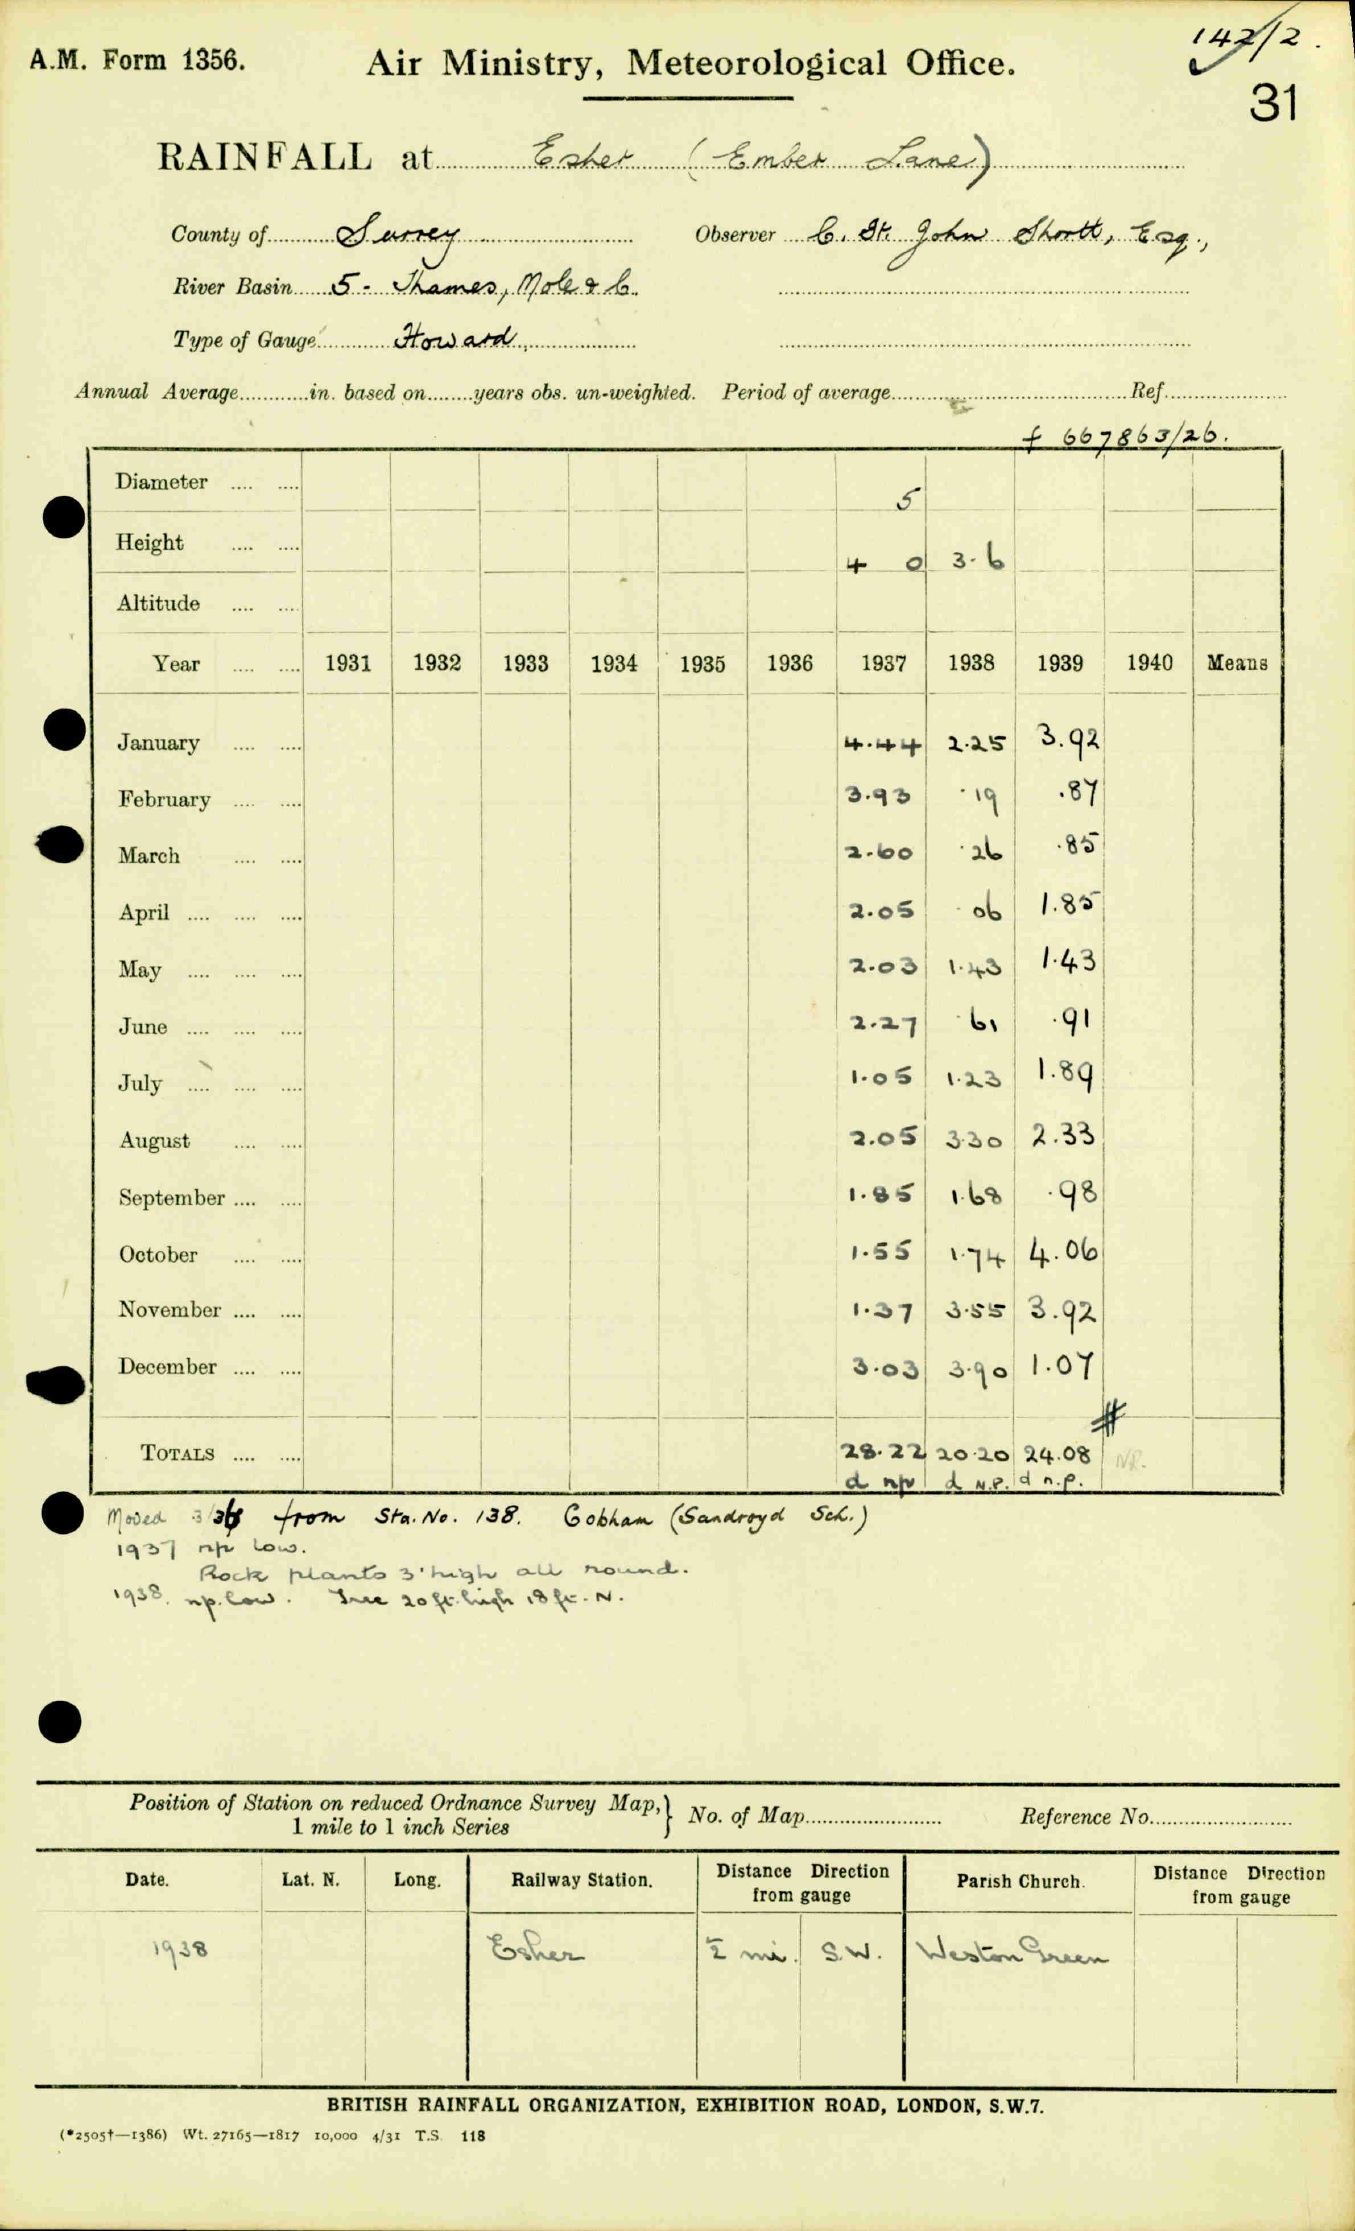 142/2.
A.M. Form 1356. Air Ministry, Meteorological Office.
31
RAINFALL at Esher (Ember Lane)
County of Surrey Observer C. St. John Shortt, Esq.,
River Basin 5 - Thames, Mole & C.
Type of Gauge Howard
Annual Average in. based on years obs. un-weighted. Period of average Ref.
f 667863/26.
Diameter 5
Height 4 0 3.6
Altitude
Year 1931 1932 1933 1934 1935 1936 1937 1938 1939 1940 Means
January 4.44 2.25 3.92
February 3.93 .19 .87
March 2.60 .26 .85
April 2.05 .06 1.85
May 2.03 1.43 1.43
June 2.27 .61 .91
July 1.05 1.23 1.89
August 2.05 3.30 2.33
September 1.85 1.68 .98
October 1.55 1.74 4.06
November 1.37 3.55 3.92
December 3.03 3.90 1.07
#
TOTALS 28.22 20.20 24.08 N.R.
d np d N.P. d n.p.
Moved from Sta. No. 138. Cobham (Sandroyd Sch.)
1937 np low.
Rock plants 3' high all round.
1938. np. low. Tree 20 ft. high 18 ft. N.
Position of Station on reduced Ordnance Survey Map, } No. of Map Reference No.
1 mile to 1 inch Series
Date. Lat. N. Long. Railway Station. Distance Direction from gauge Parish Church. Distance Direction from gauge
1938 Esher ½ mi. S.W. Weston Green
BRITISH RAINFALL ORGANIZATION, EXHIBITION ROAD, LONDON, S.W.7.
(*2505†—1386) Wt. 27165—1817 10,000 4/31 T.S. 118